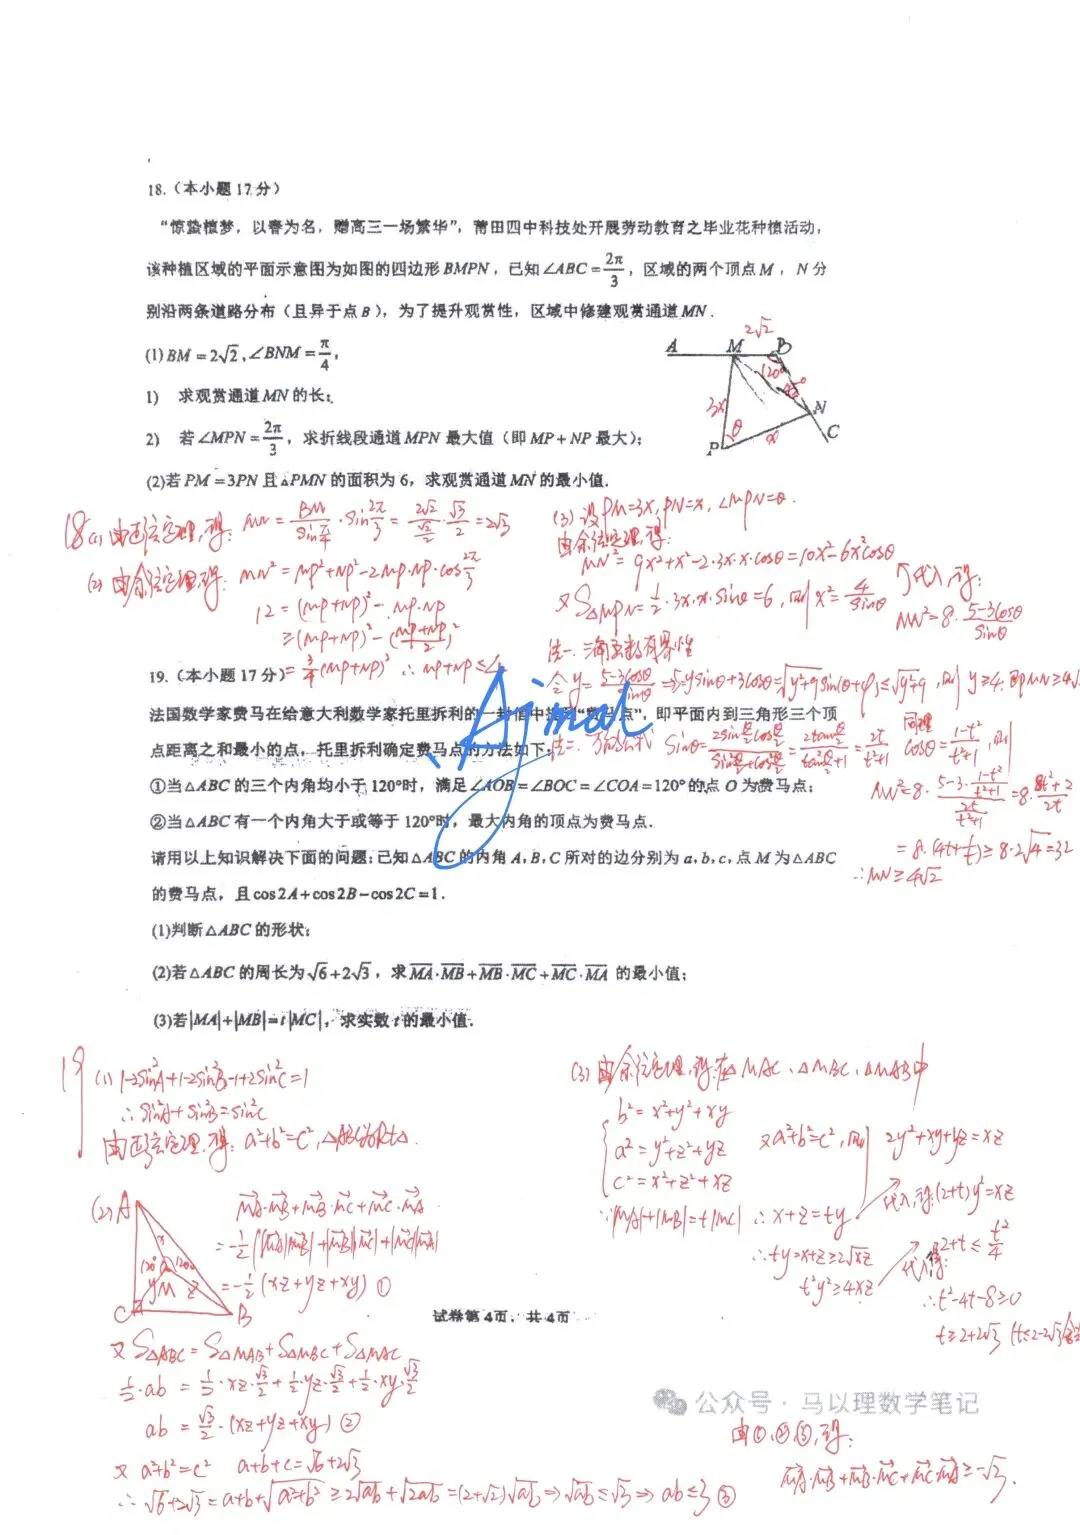 18.（本小题17分）
“惊蛰植梦，以春为名，赠高三一场繁华”，莆田四中科技处开展劳动教育之毕业花种植活动，
该种植区域的平面示意图为如图的四边形BMPN，已知∠ABC=2π/3，区域的两个顶点M，N分
别沿两条道路分布（且异于点B），为了提升观赏性，区域中修建观赏通道MN．
(1)BM=2√2,∠BNM=π/4，
1) 求观赏通道MN的长；
2) 若∠MPN=2π/3，求折线段通道MPN最大值（即MP+NP最大）；
(2)若PM=3PN且△PMN的面积为6，求观赏通道MN的最小值．
2√2
A M B
120°
45°
3x
N
θ
x
C
P
18(1)由正弦定理,得: MN=BM/sin π/4·sin 2π/3=2√2/(√2/2)·√3/2=2√3
(2)由余弦定理,得: MN²=MP²+NP²-2MP·NP·cos 2π/3
12=(MP+NP)²-MP·NP
≥(MP+NP)²-((MP+NP)/2)²
=3/4(MP+NP)² ∴MP+NP≤4
(3)设PM=3x,PN=x,∠MPN=θ.
由余弦定理,得:
MN²=9x²+x²-2·3x·x·cosθ=10x²-6x²cosθ
又S△MPN=1/2·3x·x·sinθ=6,则x²=4/sinθ
代入,得:
MN²=8·(5-3cosθ)/sinθ
法一.三角函数有界性
令y=(5-3cosθ)/sinθ⇒5=ysinθ+3cosθ=√(y²+9)sin(θ+φ)≤√(y²+9),则y≥4.即MN≥4√
法二.万能公式 sinθ=(2sin θ/2 cos θ/2)/(sin² θ/2+cos² θ/2)=(2tan θ/2)/(tan² θ/2+1)=2t/(t²+1)
同理 cosθ=(1-t²)/(t²+1),则
MN²=8·(5-3·(1-t²)/(t²+1))/(2t/(t²+1))=8·(8t²+2)/2t
=8·(4t+1/t)≥8·2√4=32
∴MN≥4√2
Ajmal
19.（本小题17分）
法国数学家费马在给意大利数学家托里拆利的一封信中提到“费马点”，即平面内到三角形三个顶
点距离之和最小的点，托里拆利确定费马点的方法如下：
①当△ABC的三个内角均小于120°时，满足∠AOB=∠BOC=∠COA=120°的点O为费马点；
②当△ABC有一个内角大于或等于120°时，最大内角的顶点为费马点．
请用以上知识解决下面的问题：已知△ABC的内角A,B,C所对的边分别为a,b,c,点M为△ABC
的费马点，且cos2A+cos2B-cos2C=1．
(1)判断△ABC的形状；
(2)若△ABC的周长为√6+2√3，求MA·MB+MB·MC+MC·MA的最小值；
(3)若|MA|+|MB|=t|MC|，求实数t的最小值．
19
(1) 1-2sin²A+1-2sin²B-1+2sin²C=1
∴sin²A+sin²B=sin²C
由正弦定理,得: a²+b²=c²,△ABC为Rt△.
(2)
A
x
120° 120°
y M z
C B
MA·MB+MB·MC+MC·MA
=-1/2(|MA||MB|+|MB||MC|+|MC||MA|)
=-1/2(xz+yz+xy) ①
又S△ABC=S△MAB+S△MBC+S△MAC
1/2·ab=1/2·xz·√3/2+1/2·yz·√3/2+1/2·xy·√3/2
ab=√3/2·(xz+yz+xy) ②
又a²+b²=c² a+b+c=√6+2√3
∴√6+2√3=a+b+√(a²+b²)≥2√ab+√2ab=(2+√2)√ab⇒√ab≤√3⇒ab≤3 ③
(3)由余弦定理,得:在△MAC、△MBC、△MAB中
b²=x²+y²+xy
a²=y²+z²+yz
c²=x²+z²+xz
又a²+b²=c²,则
2y²+xy+yz=xz
∵|MA|+|MB|=t|MC| ∴x+z=ty
代入,得:(2+t)y²=xz
∴ty=x+z≥2√xz
t²y²≥4xz
代入,得:
2+t≤t²/4
∴t²-4t-8≥0
t≥2+2√3 (t≤2-2√3舍
试卷第4页，共4页
公众号·马以理数学笔记
由①、②、③,得:
MA·MB+MB·MC+MC·MA≥-√3.